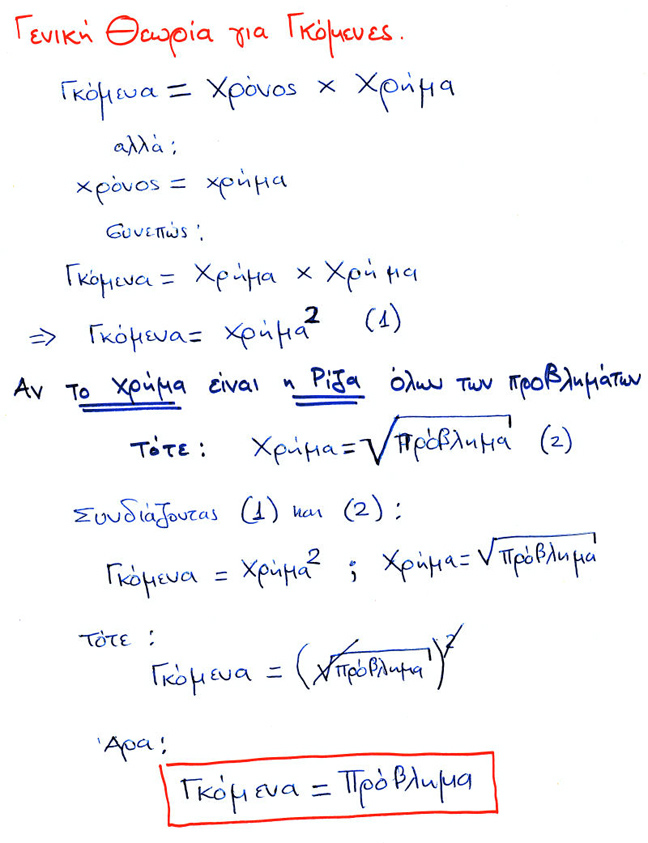 Γενική Θεωρία για Γκόμενες.
Γκόμενα = Χρόνος × Χρήμα
αλλά:
χρόνος = χρήμα
Συνεπώς:
Γκόμενα = Χρήμα × Χρήμα
⇒ Γκόμενα = Χρήμα² (1)
Αν το χρήμα είναι η Ρίζα όλων των προβλημάτων
Τότε: Χρήμα = √Πρόβλημα (2)
Συνδιάζοντας (1) και (2):
Γκόμενα = Χρήμα² ; Χρήμα = √Πρόβλημα
Τότε:
Γκόμενα = (√Πρόβλημα)²
Άρα:
Γκόμενα = Πρόβλημα